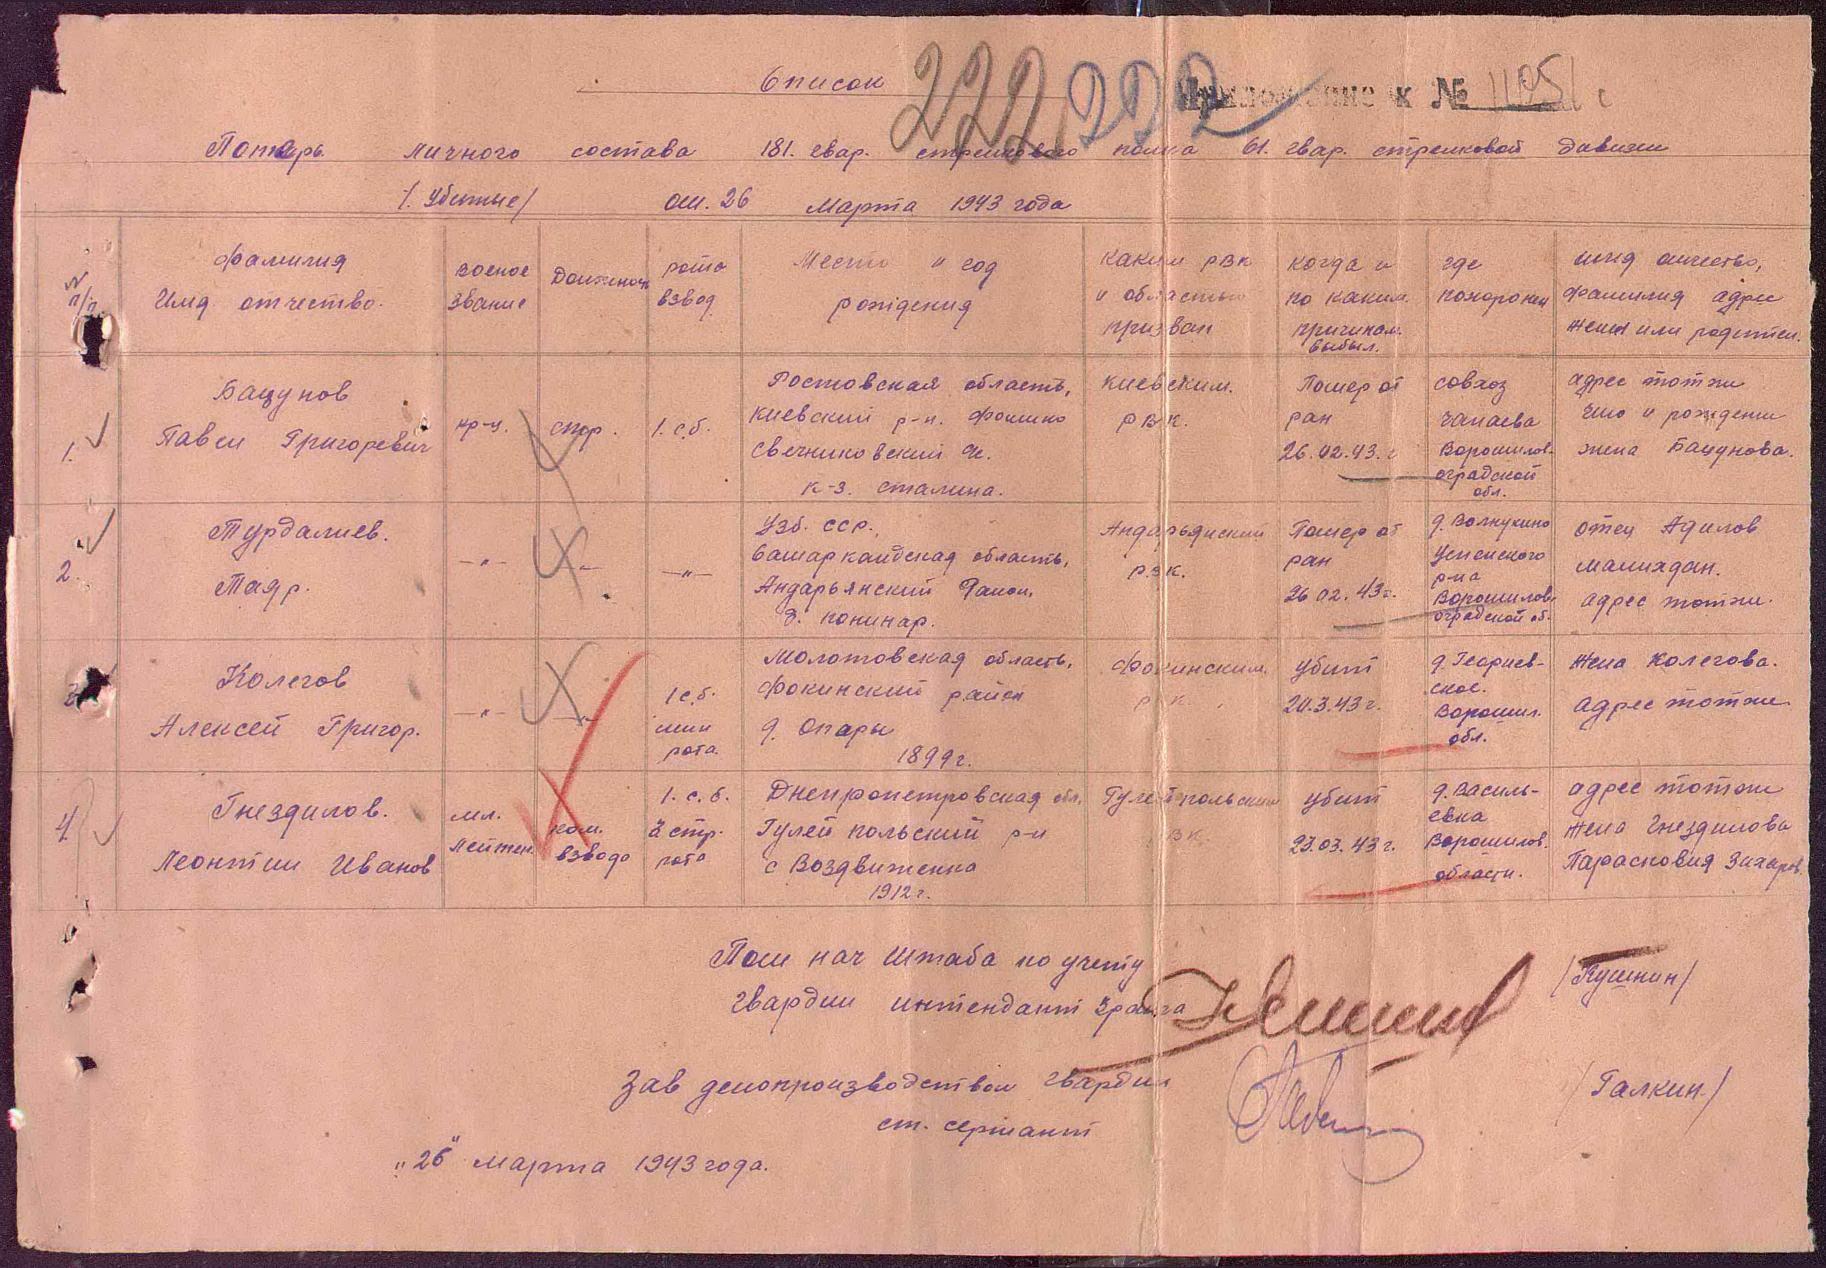 Список
222 222
Приложение к № 11051 с
Потерь личного состава 181. гвар. стрелкового полка 61. гвар. стрелковой дивизии
/. Убитые/ от. 26 Марта 1943 года
№ п/п
Фамилия
Имя отчество.
Военое
звание
Должность
рота
взвод
Место и год
рождения
Каким рвк
и областью
призван
когда и
по каким.
причинам.
выбыл.
где
похоронен
имя отчество,
фамилия адрес
жены или родител.
1.
Бацунов
Павел Григоревич
кр-ц.
стр.
1. с.б.
Ростовская область,
Киевский р-н. Фомино
Свечниковский
к-з. Сталина.
Киевским.
РВК.
Помер от
ран
26.02.43. г
совхоз
чапаева
Ворошилов-
оградской
обл.
адрес тотже
что и рождения
жена Бацунова.
2.
Турдалиев.
Тадр.
—"—
—"—
—"—
Узб. ССР.,
Андарьянский Район,
д. конинар.
Андарьянский
р.в.к.
Помер от
ран
26 02. 43 г.
д. Волнукино
Успенского
р-на
Ворошилов-
оградской об.
отец Адилов
адрес тотже.
3
Колегов
Алексей Григор.
—"—
—"—
1 с.б
мин
рота.
Молотовская область,
Фокинский район
д. Опары
1899 г.
Фокинским.
р к.
убит
20.3.43 г.
д. Георгиев-
ское.
Ворошил.
обл.
Жена Колегова.
адрес тотже
4.
Гнездилов.
Леонтии Иванов
мл.
Лейтен.
ком.
взвода
1. с. б.
2 стр.
рота
Днепропетровская обл.
Гулей польский р-н
с Воздвиженка
1912 г.
Гулей польским
РВК.
убит
23.03.43 г.
д. Василь-
евка
Ворошилов.
области.
адрес тотже
жена Гнездилова
Парасковия Захаров.
Пом нач Штаба по учету
гвардии интендант 3 ранга
/Пушнин/
Зав делопроизводством гвардии
ст. сержант
/Галкин./
„26" марта 1943 года.